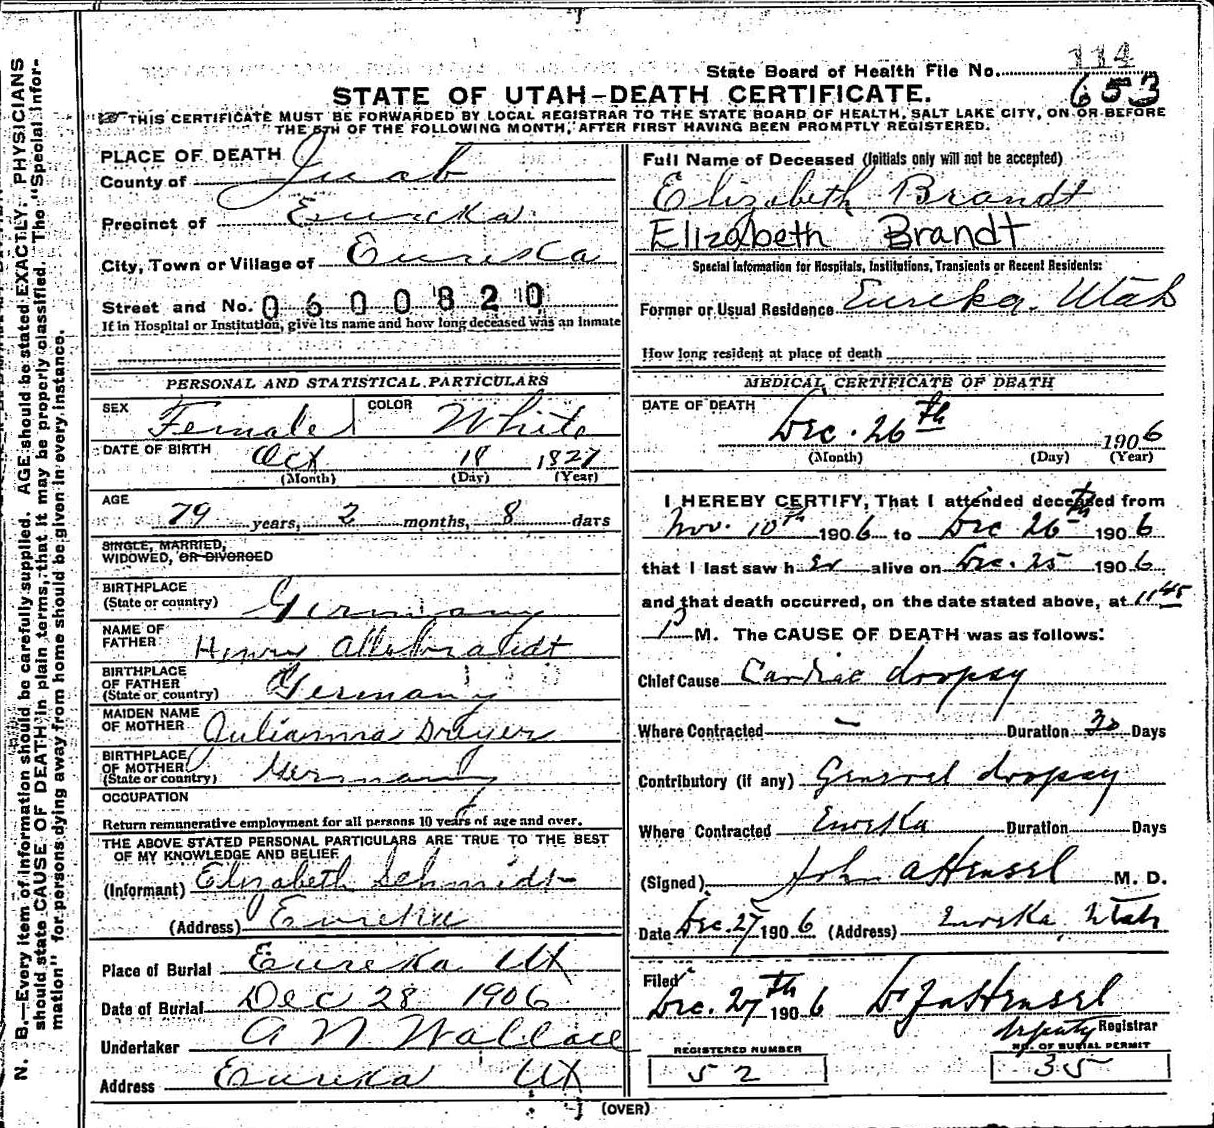 N. B.—Every item of information should be carefully supplied. AGE should be stated EXACTLY. PHYSICIANS
should state CAUSE OF DEATH in plain terms, that it may be properly classified. The "Special Infor-
mation" for persons dying away from home should be given in every instance.
114
State Board of Health File No.
653
STATE OF UTAH—DEATH CERTIFICATE.
THIS CERTIFICATE MUST BE FORWARDED BY LOCAL REGISTRAR TO THE STATE BOARD OF HEALTH, SALT LAKE CITY, ON OR BEFORE
THE 5TH OF THE FOLLOWING MONTH, AFTER FIRST HAVING BEEN PROMPTLY REGISTERED.
PLACE OF DEATH
County of Juab
Precinct of Eureka
City, Town or Village of Eureka
Street and No. 0600820
If in Hospital or Institution, give its name and how long deceased was an inmate
PERSONAL AND STATISTICAL PARTICULARS
SEX Female COLOR White
DATE OF BIRTH Oct 18 1827
(Month) (Day) (Year)
AGE
79 years, 2 months, 8 days
SINGLE, MARRIED,
WIDOWED, OR DIVORCED
BIRTHPLACE
(State or country) Germany
NAME OF
FATHER Henry
BIRTHPLACE
OF FATHER
(State or country) Germany
MAIDEN NAME
OF MOTHER Julianna
BIRTHPLACE
OF MOTHER
(State or country) Germany
OCCUPATION
Return remunerative employment for all persons 10 years of age and over.
THE ABOVE STATED PERSONAL PARTICULARS ARE TRUE TO THE BEST
OF MY KNOWLEDGE AND BELIEF
(Informant) Elizabeth Schmidt
(Address) Eureka
Place of Burial Eureka Ut
Date of Burial Dec 28 1906
Undertaker A N Wallace
Address Eureka Ut
Full Name of Deceased (Initials only will not be accepted)
Elizabeth Brandt
Elizabeth Brandt
Special Information for Hospitals, Institutions, Transients or Recent Residents:
Former or Usual Residence Eureka, Utah
How long resident at place of death
MEDICAL CERTIFICATE OF DEATH
DATE OF DEATH
Dec. 26th 1906
(Month) (Day) (Year)
I HEREBY CERTIFY, That I attended deceased from
Nov. 10th 1906 to Dec 26th 1906
that I last saw her alive on Dec. 25 1906
and that death occurred, on the date stated above, at 11 45
P M. The CAUSE OF DEATH was as follows:
Chief Cause Cardiac dropsy
Where Contracted — Duration 30 Days
Contributory (if any) General dropsy
Where Contracted Eureka Duration Days
(Signed) John A Hensel M. D.
Date Dec. 27 1906 (Address) Eureka, Utah
Filed
Dec. 27th 1906 Hensel
deputy Registrar
REGISTERED NUMBER
52
NO. OF BURIAL PERMIT
35
(OVER)